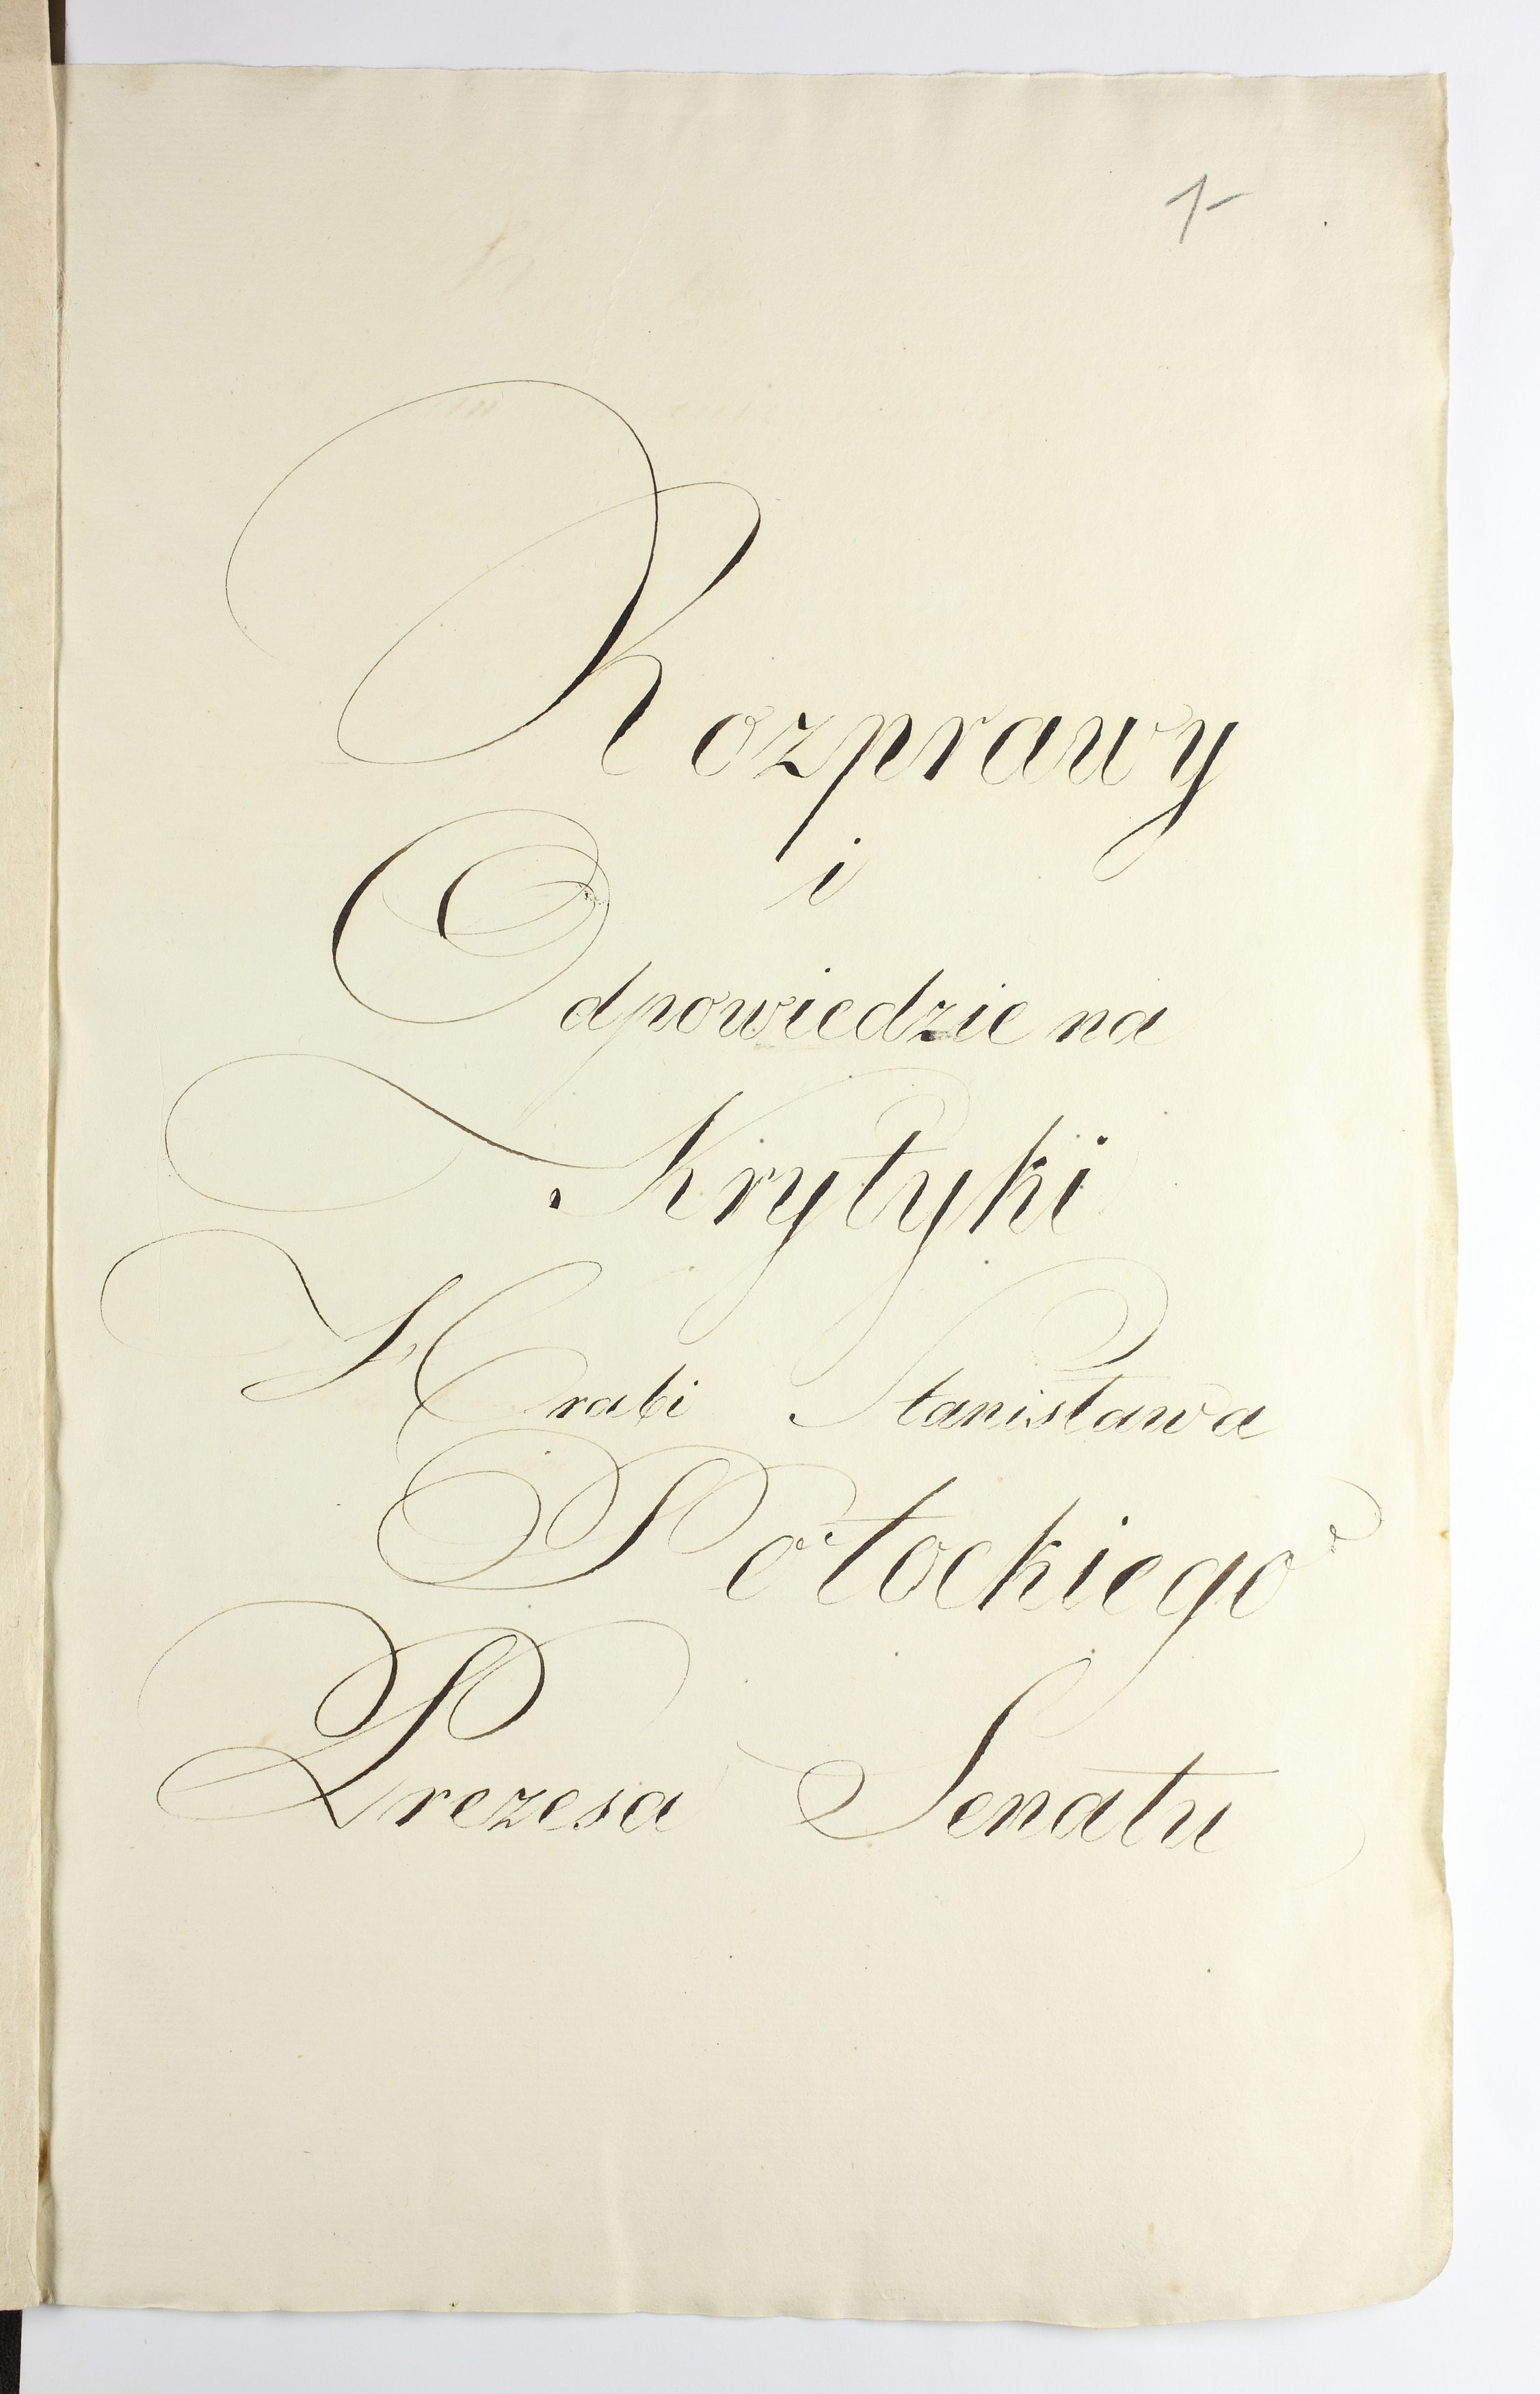 1
Rozprawy
i
Odpowiedzie na
Krytyki
Hrabi Stanisława
Potockiego
Prezesa Senatu